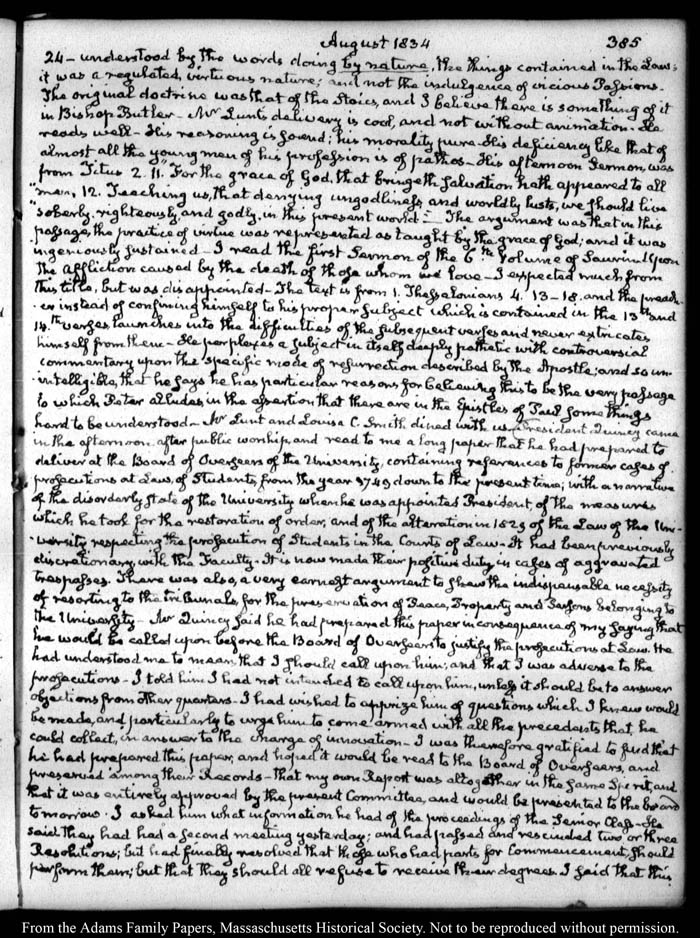 August 1834
385
24 – understood by the words doing by nature, the things contained in the Law;
it was a regulated, virtuous nature; and not the indulgence of vicious Passions.
The original doctrine was that of the Stoics, and I believe there is something of it
in Bishop Butler – Mr Lunt's delivery is cool, and not without animation. He
reads well – His reasoning is sound; his morality pure. His deficiency like that of
almost all the young men of his profession is of pathos – His afternoon Sermon, was
from Titus 2. 11. "For the grace of God, that bringeth Salvation hath appeared to all
"men, 12. Teaching us, that denying ungodliness and worldly lusts, we should live
"soberly, righteously, and godly, in this present world:" – The argument was that in this
passage, the practice of virtue was represented as taught by the grace of God; and it was
ingeniously sustained – I read the first Sermon of the 6th Volume of Saurin. Upon
the affliction caused by the death of those whom we love – I expected much from
this title, but was disappointed – The text is from 1. Thessalonians 4. 13–18. and the preach-
er instead of confining himself to his proper subject which is contained in the 13th and
14.th verses launches into the difficulties of the subsequent verses and never extricates
himself from them – He perplexes a subject in itself deeply pathetic with controversial
commentary upon the specific mode of resurrection described by the Apostle; and so un-
intelligible, that he says he has particular reasons for believing this to be the very passage
to which Peter alludes, in the assertion that there are in the Epistles of Paul some things
hard to be understood – Mr Lunt and Louisa C. Smith dined with us – President Quincy came
in the afternoon after public worship, and read to me a long paper that he had prepared to
deliver at the Board of Overseers of the University, containing references to former cases of
prosecutions at Law, of Students, from the year 1749 down to the present time; with a narrative
of the disorderly state of the University when he was appointed President, of the measures
which he took for the restoration of order, and of the alteration in 1825 of the Law of the Uni-
versity respecting the prosecution of Students in the Courts of Law – It had been previously
discretionary with the Faculty – It is now made their positive duty in cases of aggravated
trespasses. There was also, a very earnest argument to shew the indispensable necessity
of resorting to the tribunals, for the preservation of Peace, Property and Persons belonging to
the University – Mr Quincy said he had prepared this paper in consequence of my saying that
he would be called upon before the Board of Overseers to justify the prosecutions at Law. He
had understood me to mean, that I should call upon him; and that I was adverse to the
prosecutions – I told him I had not intended to call upon him, unless it should be to answer
objections from other quarters – I had wished to apprize him of questions which I knew would
be made, and particularly to urge him to come armed with all the precedents that, he
could collect, in answer to the charge of innovation – I was therefore gratified to find that
he had prepared this paper, and hoped it would be read to the Board of Overseers, and
preserved among their Records – that my own Report was altogether in the same Spirit, and
that it was entirely approved by the present Committee, and would be presented to the board
tomorrow. I asked him what information he had of the proceedings of the Senior Class – He
said they had had a second meeting yesterday; and had passed and rescinded two or three
Resolutions; but had finally resolved that those who had parts for Commencement, should
perform them; but that they should all refuse to receive their degrees. I said that this
From the Adams Family Papers, Massachusetts Historical Society. Not to be reproduced without permission.